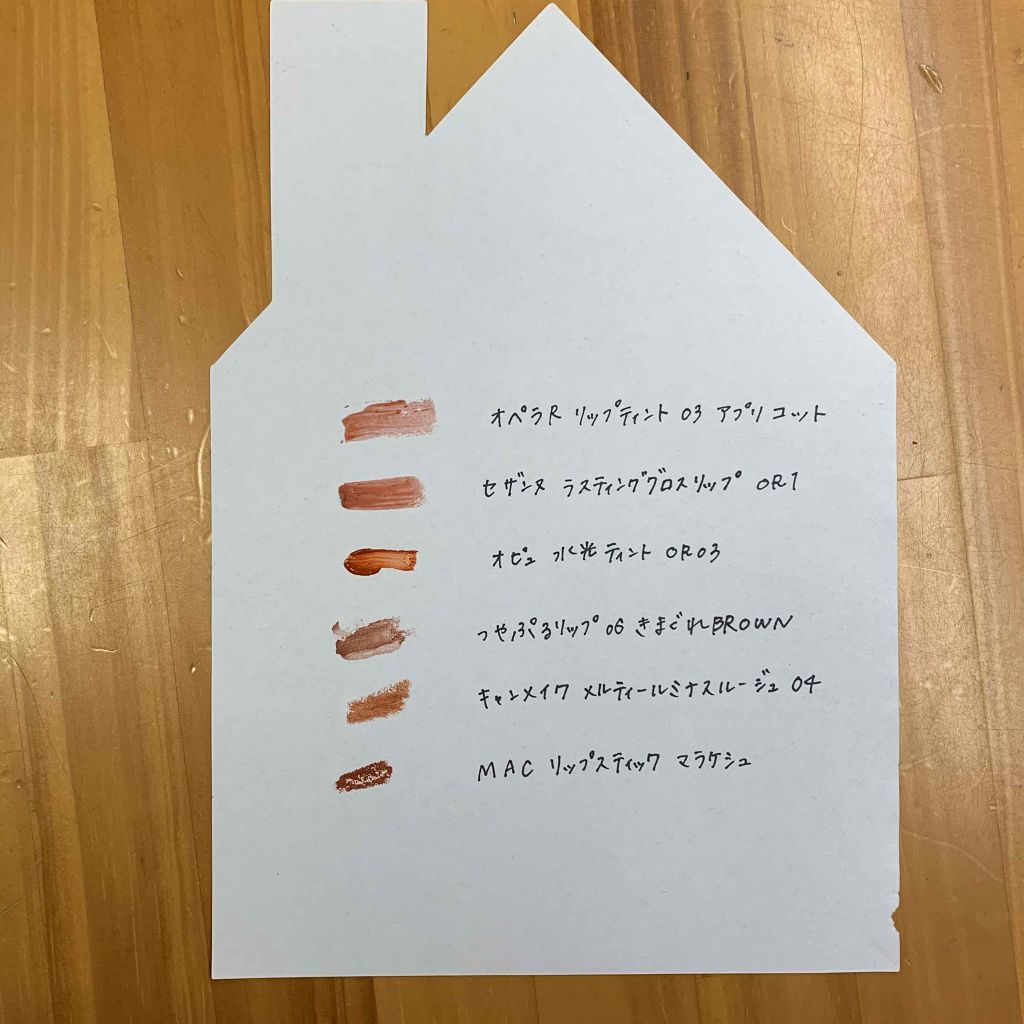 オペラR リップティント 03 アプリコット
セザンヌ ラスティンググロスリップ OR1
オピュ 水光ティント OR03
つやぷるリップ 06 きまぐれBROWN
キャンメイク メルティールミナスルージュ 04
MAC リップスティック マラケシュ